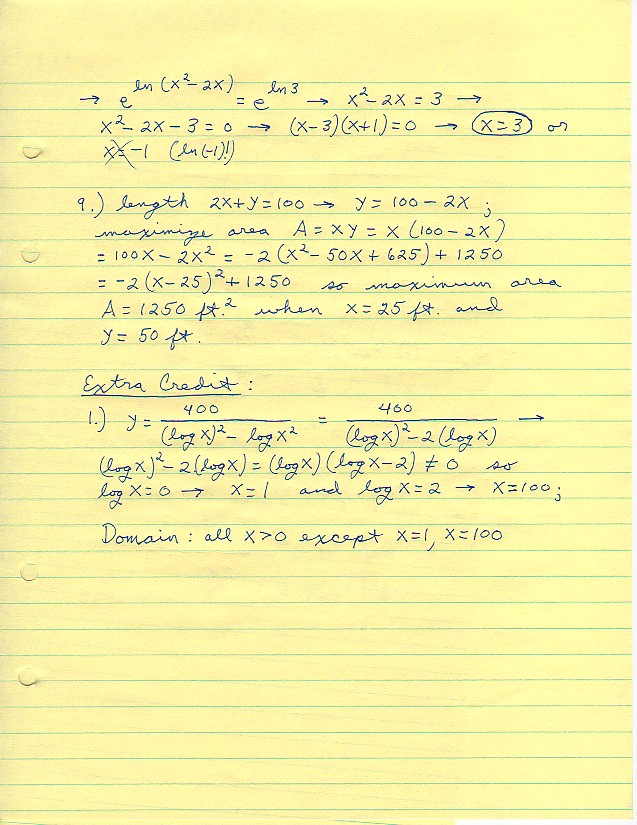 → e^{ln (x²-2x)} = e^{ln 3} → x²-2x = 3 →
x²-2x-3=0 → (x-3)(x+1)=0 → x=3 or
x=-1 (ln(-1)!)
9.) length 2x+y=100 → y=100-2x ;
maximize area A=xy=x(100-2x)
=100x-2x² = -2(x²-50x+625)+1250
=-2(x-25)²+1250 so maximum area
A=1250 ft.² when x=25 ft. and
y=50 ft.
Extra Credit :
1.) y = 400/((log x)²-log x²) = 400/((log x)²-2(log x)) →
(log x)²-2(log x)=(log x)(log x-2)≠0 so
log x=0 → x=1 and log x=2 → x=100;
Domain : all x>0 except x=1, x=100